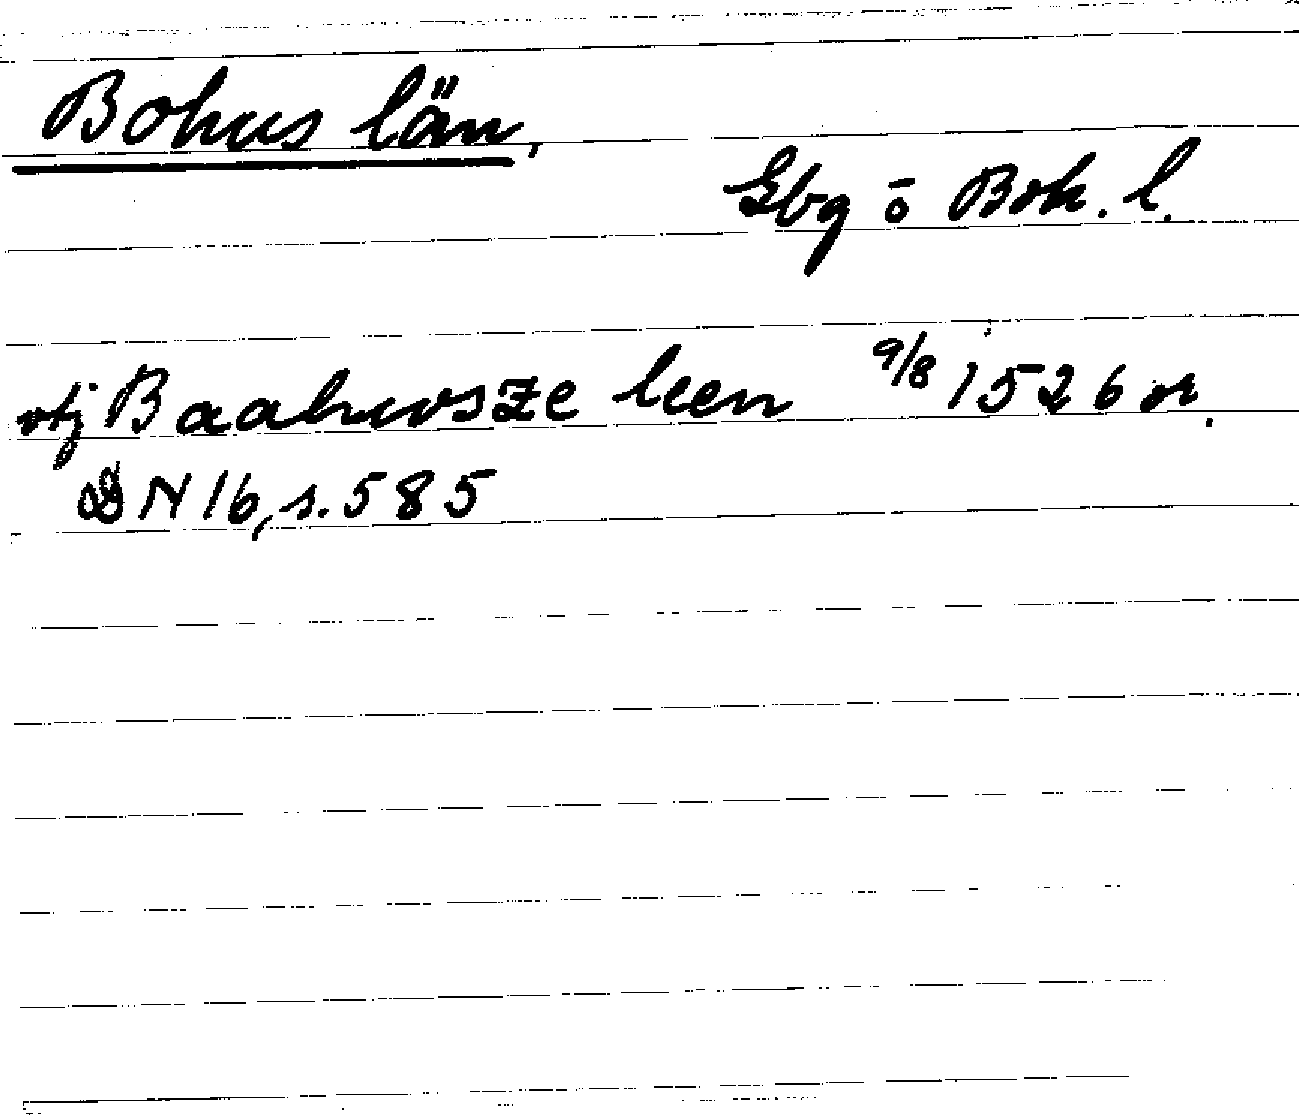 Bohus län,
Gbg o Boh. l.
vtj Baahwsze leen 9/8 1526 or.
DN 16, s. 585